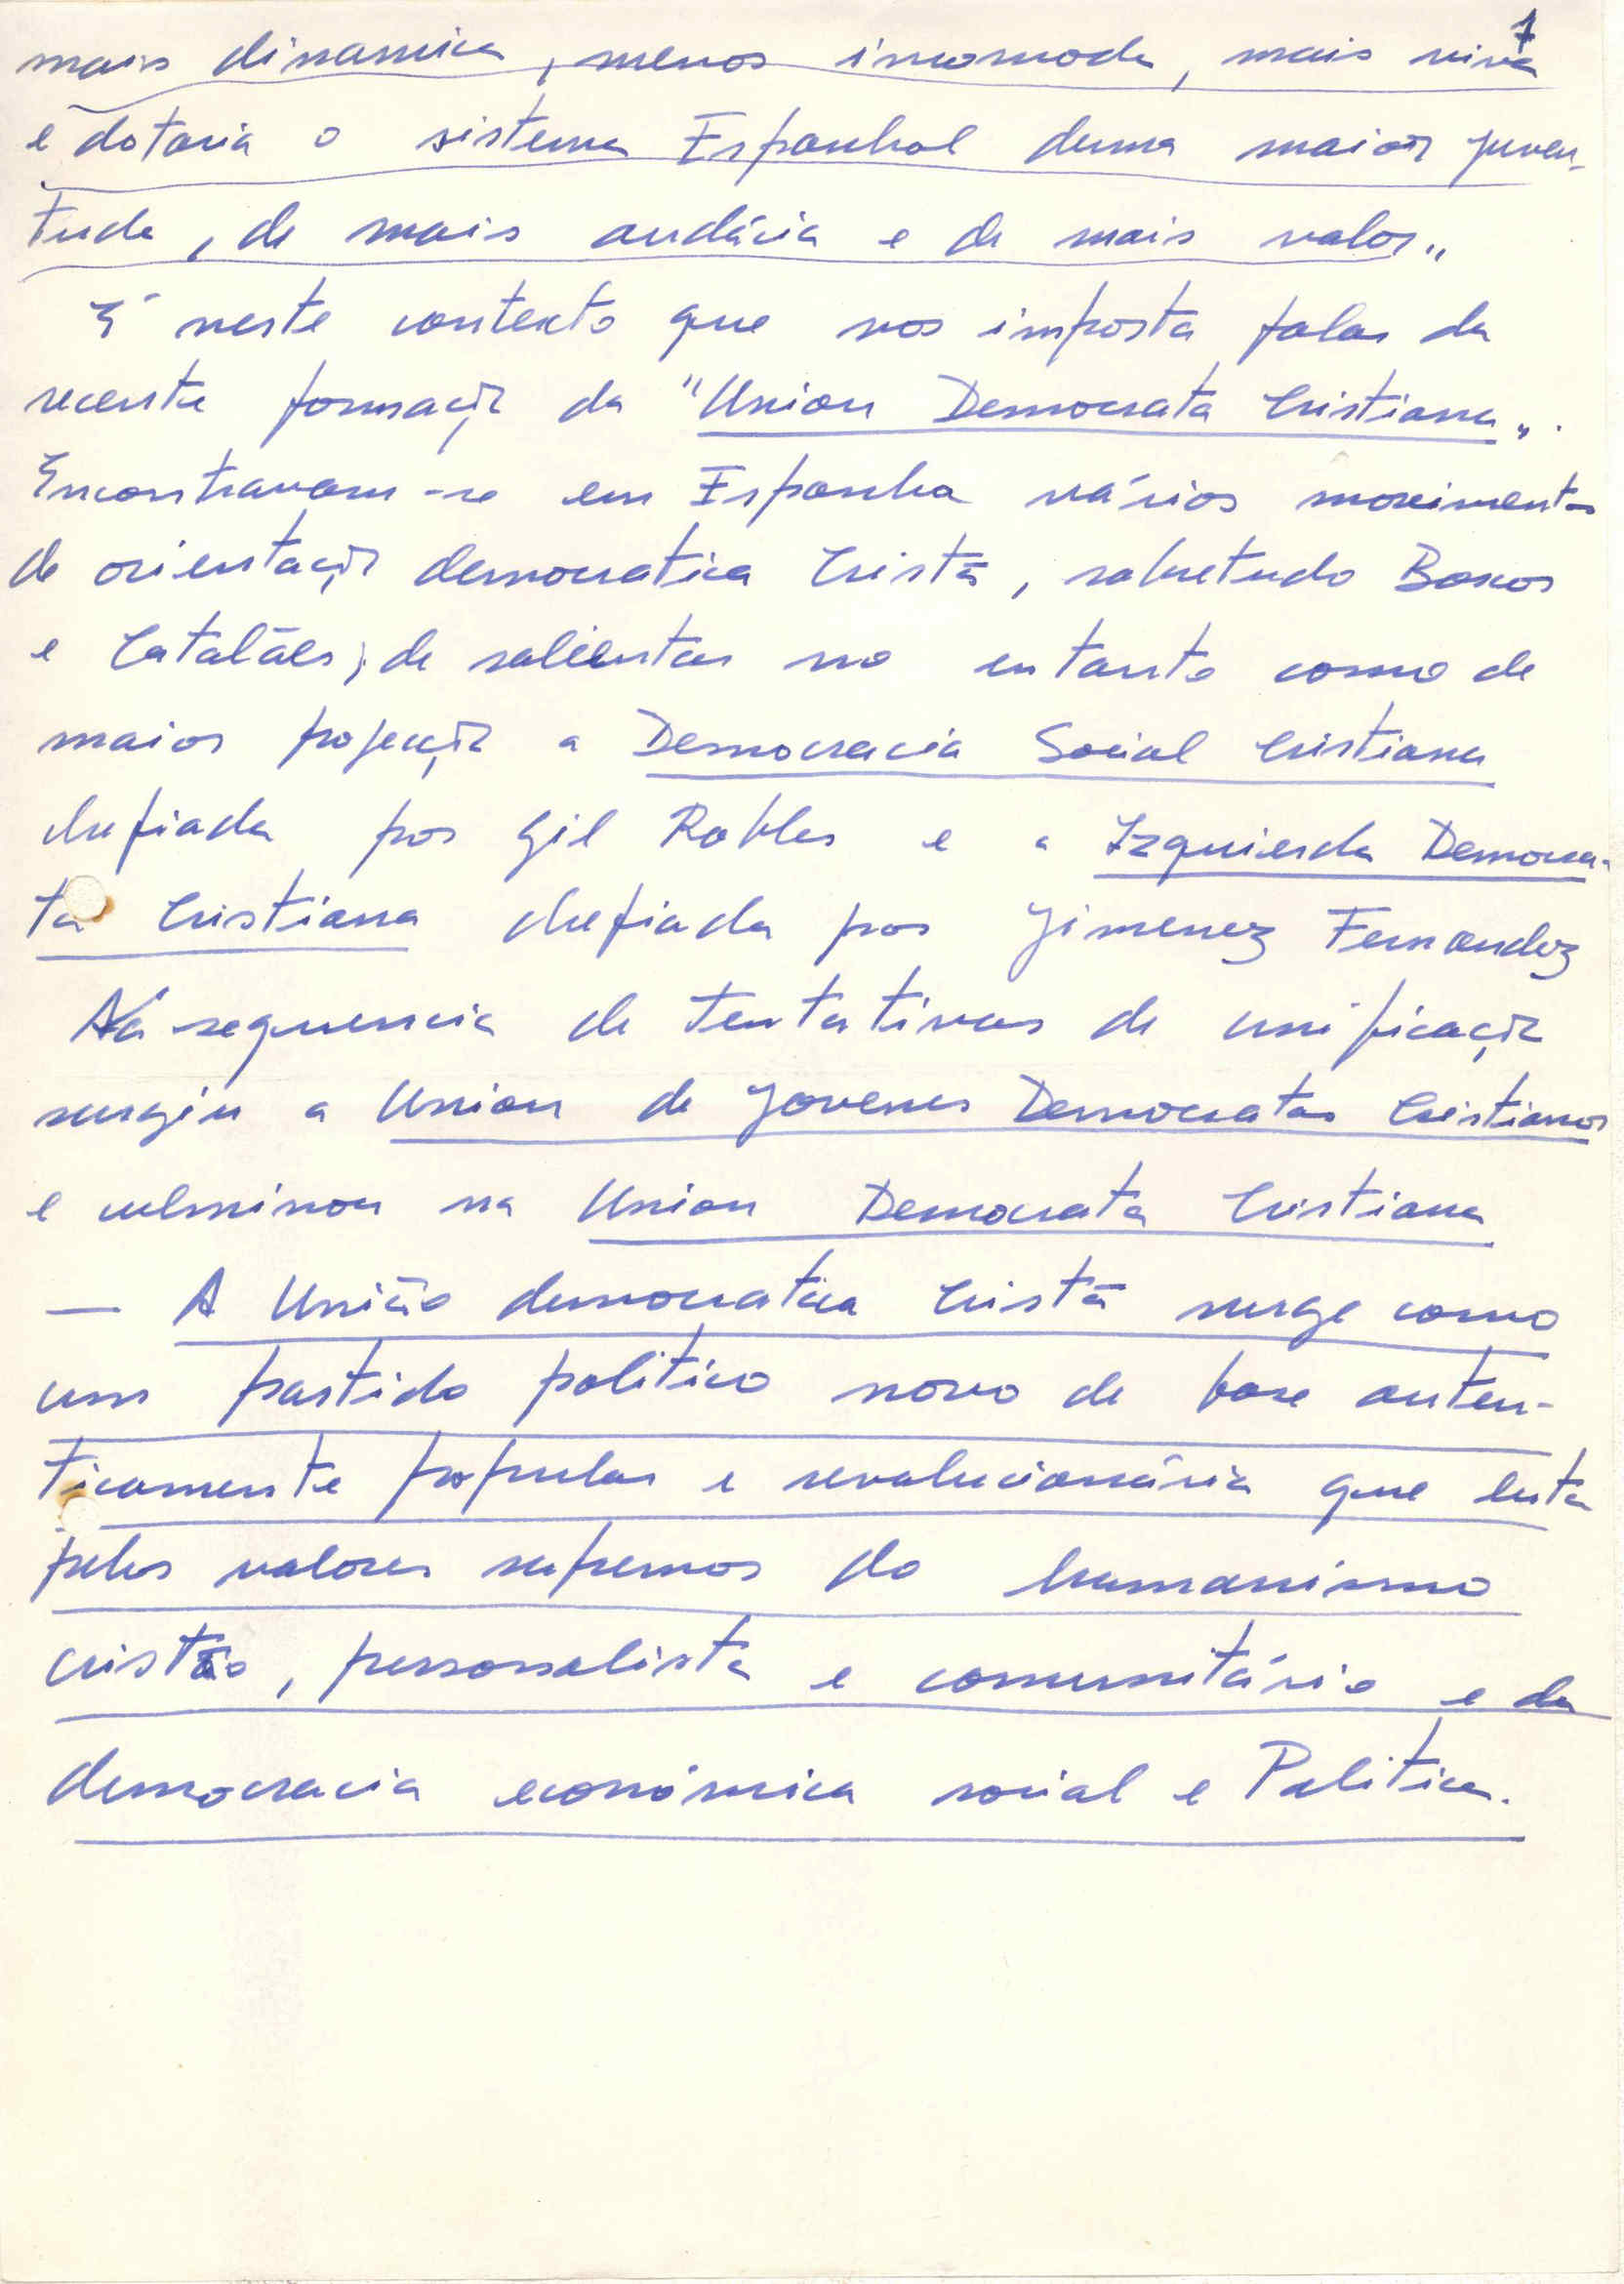 1
mais dinamica, menos incomoda, mais viva
e dotaria o sistema Espanhol duma maior juven-
tude, de mais audácia e de mais valor"
É neste contexto que nos importa falar da
recente formação da "Union Democrata Cristiana".
Encontravam-se em Espanha vários movimentos
de orientação democratica Cristã, sobretudo Bascos
e Catalães; de salientar no entanto como de
maior projecção a Democracia Social Cristiana
chefiada por Gil Robles e a Izquierda Democra-
ta Cristiana chefiada por Jimenez Fernandez
Na sequencia de tentativas de unificação
surgiu a Union de Jovenes Democratas Cristianos
e culminou na Union Democrata Cristiana
— A União democratica Cristã surge como
um partido politico novo de base auten-
ticamente popular e revolucionária que luta
pelos valores supremos do humanismo
cristão, personalista e comunitário e da
democracia económica social e Politica.